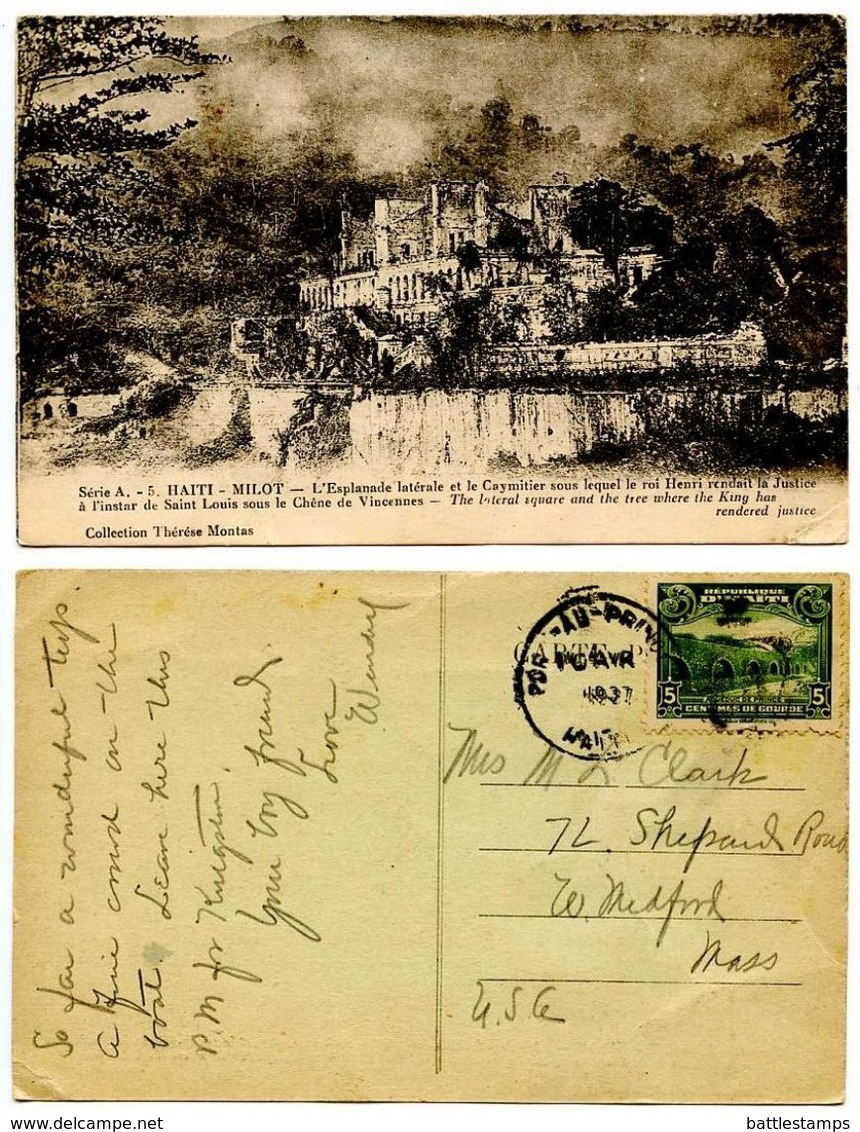 Série A. - 5. HAITI - MILOT — L'Esplanade latérale et le Caymitier sous lequel le roi Henri rendait la Justice
à l'instar de Saint Louis sous le Chêne de Vincennes — The lateral square and the tree where the King has
rendered justice
Collection Thérése Montas
So far a wonderful trip
a fine crowd on the
boat. Leave here this
P.M for Kingston.
Your boy friend
Love
Wendell
PORT-AU-PRINCE
1937
HAITI
CARTE
RÉPUBLIQUE
D'HAITI
5 5
CENTIMES DE GOURDE
Mrs M L Clark
72 Shepard Road
W. Medford
Mass
U.S.A
delcampe.net
battlestamps